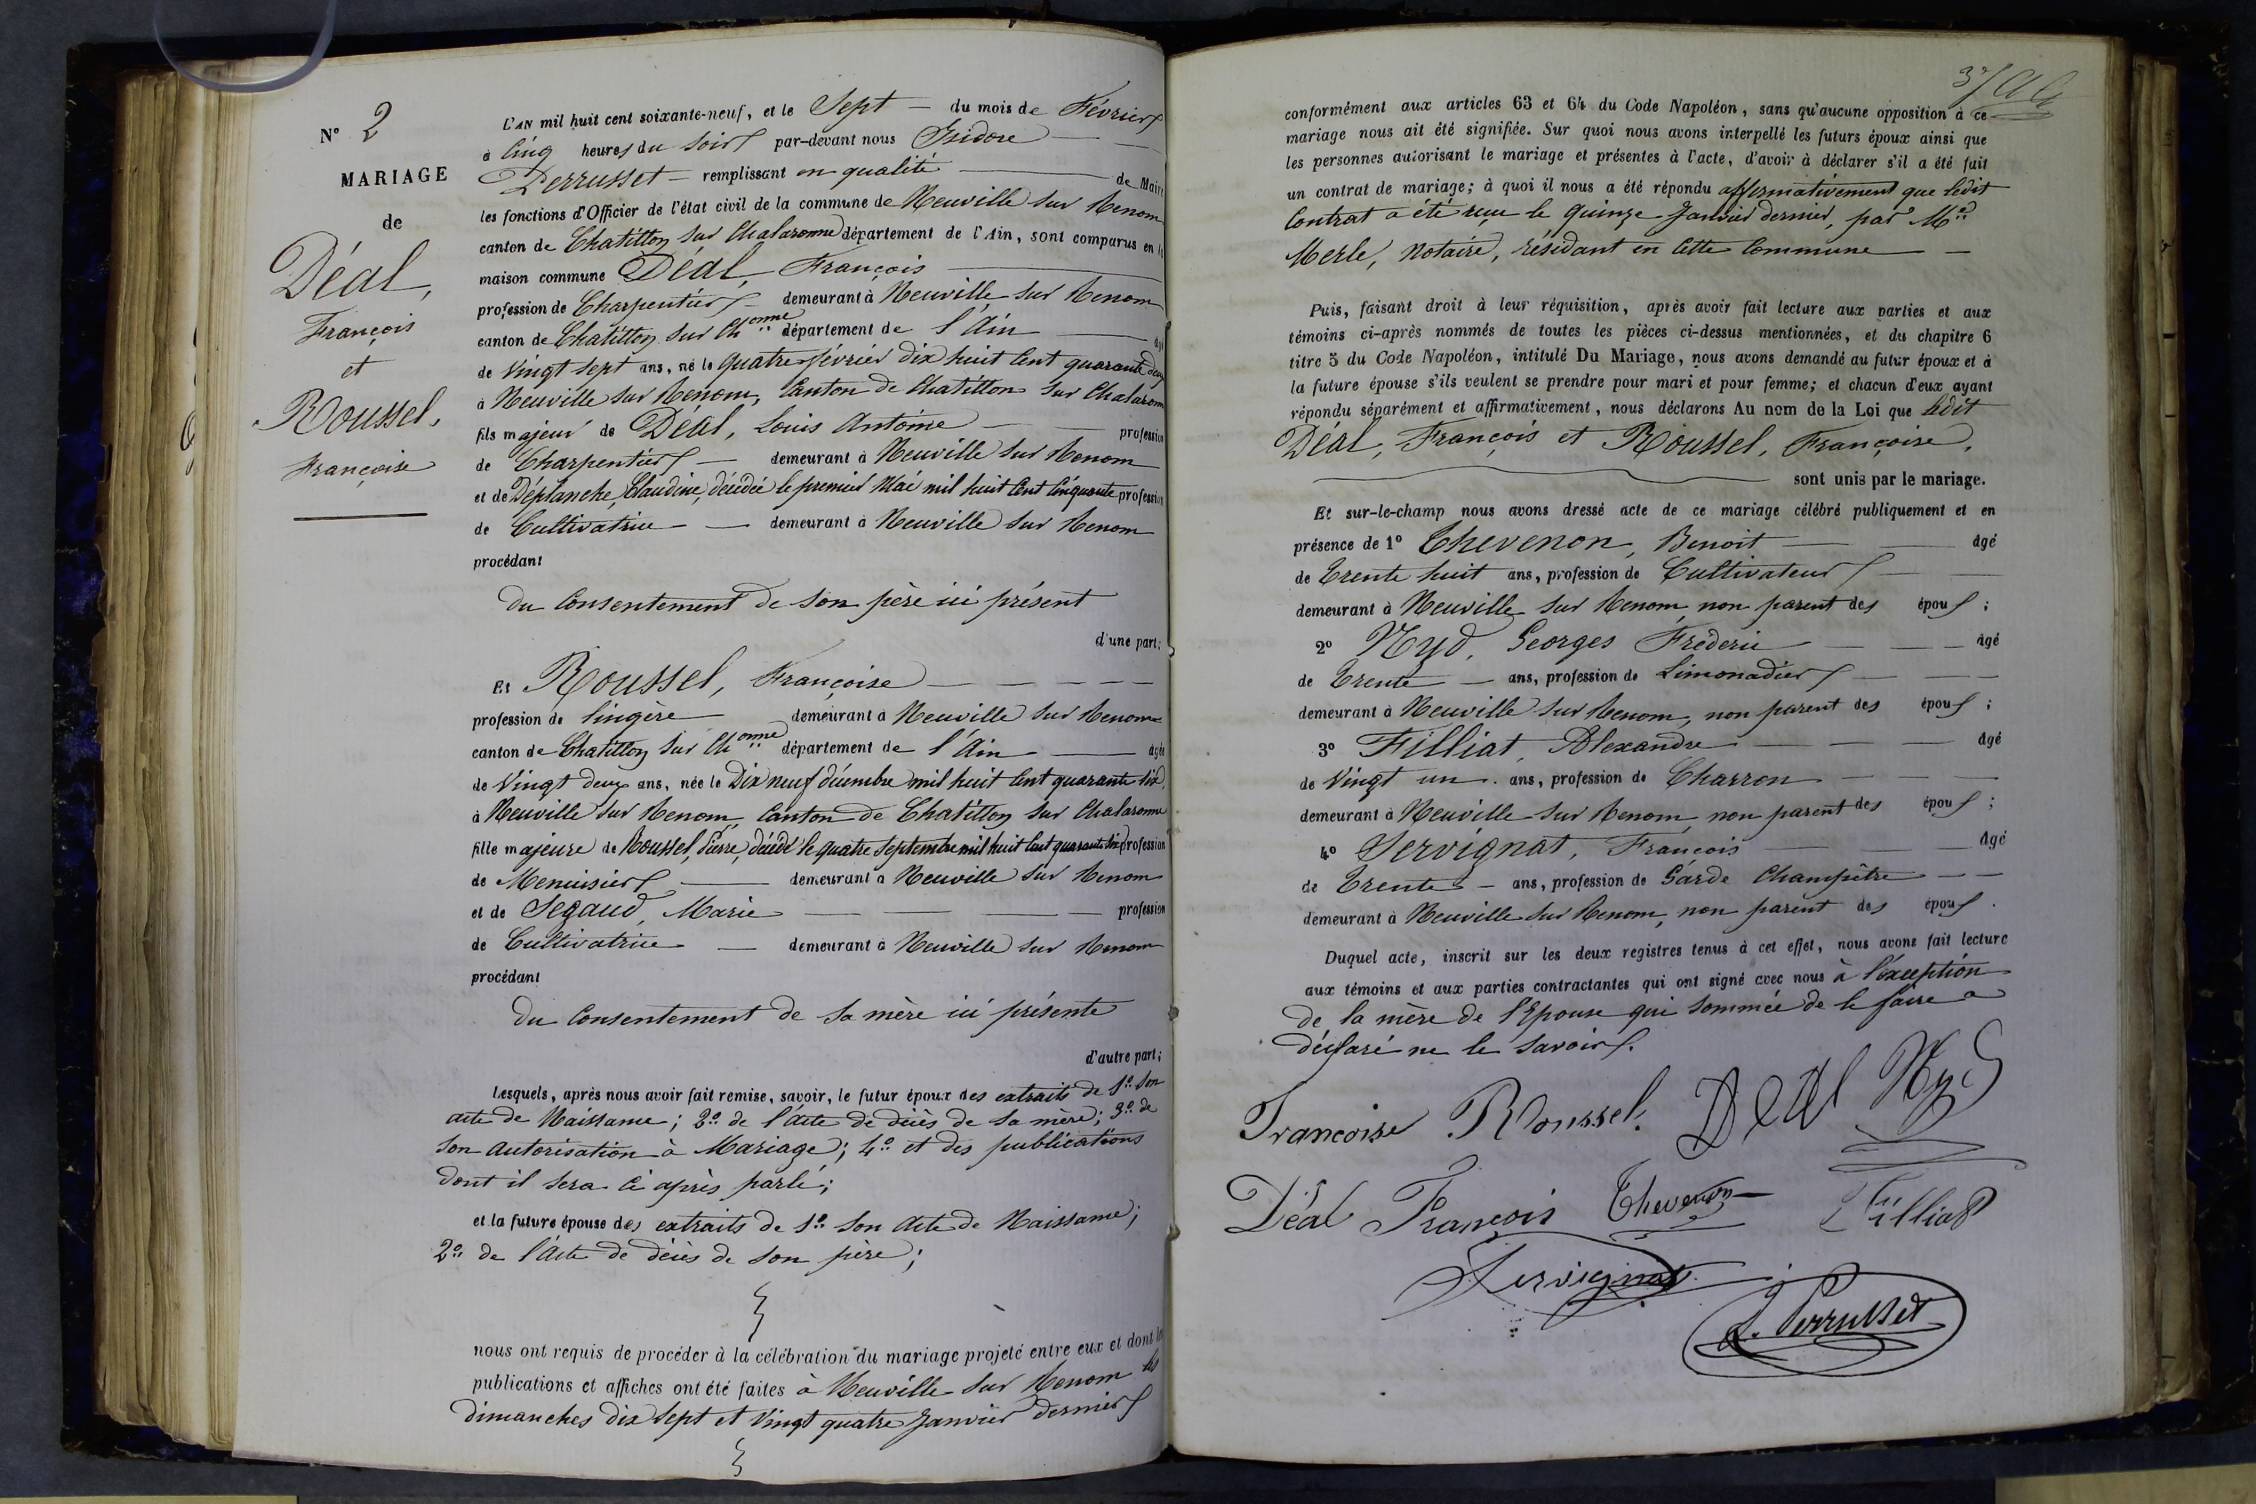 N° 2
MARIAGE
de
Déal,
François
et
Roussel,
Françoise
L'AN mil huit cent soixante-neuf, et le Sept — du mois de Février
à Cinq heures du soir par-devant nous Isidore —
Perrusset — remplissant en qualité — de Maire
les fonctions d'Officier de l'état civil de la commune de Neuville sur Renom
canton de Chatillon sur Chalaronne département de l'Ain, sont comparus en la
maison commune Déal, François —
profession de Charpentier — demeurant à Neuville sur Renom
canton de Chatillon sur Chonne département de l'Ain — âgé
de Vingt sept ans, né le quatre février dix huit Cent quarante deux
à Neuville sur Renom, Canton de Chatillon sur Chalaronne
fils majeur de Déal, Louis Antoine — profession
de Charpentier — demeurant à Neuville sur Renom
et de Déplanche, Claudine, décédée le premier Mai mil huit Cent Cinquante profession
de Cultivatrice — demeurant à Neuville sur Renom
procédant
du Consentement de son père ici présent
d'une part;
Et Roussel, Françoise — — — — —
profession de lingère demeurant à Neuville sur Renom
canton de Chatillon sur Chonne département de l'Ain — âgée
de Vingt deux ans, née le Dix neuf décembre mil huit Cent quarante six,
à Neuville sur Renom, Canton de Chatillon sur Chalaronne
fille majeure de Roussel, Pierre, décédé le quatre Septembre mil huit Cent quarante six profession
de Menuisier — demeurant à Neuville sur Renom
et de Segaud, Marie — — — — profession
de Cultivatrice — demeurant à Neuville sur Renom
procédant
du Consentement de sa mère ici présente
d'autre part;
Lesquels, après nous avoir fait remise, savoir, le futur époux des extraits de 1° son
acte de Naissance; 2° de l'acte de décès de sa mère; 3° de
son autorisation à Mariage; 4° et des publications
dont il sera ci après parlé;
et la future épouse des extraits de 1° son acte de Naissance;
2° de l'Acte de décès de son père;
nous ont requis de procéder à la célébration du mariage projeté entre eux et dont les
publications et affiches ont été faites à Neuville sur Renom les
dimanches dix sept et Vingt quatre Janvier dernier
conformément aux articles 63 et 64 du Code Napoléon, sans qu'aucune opposition à ce
mariage nous ait été signifiée. Sur quoi nous avons interpellé les futurs époux ainsi que
les personnes autorisant le mariage et présentes à l'acte, d'avoir à déclarer s'il a été fait
un contrat de mariage; à quoi il nous a été répondu affirmativement que ledit
Contrat a été reçu le quinze Janvier dernier, par Me
Merle, Notaire, résidant en cette Commune —
Puis, faisant droit à leur réquisition, après avoir fait lecture aux parties et aux
témoins ci-après nommés de toutes les pièces ci-dessus mentionnées, et du chapitre 6
titre 5 du Code Napoléon, intitulé Du Mariage, nous avons demandé au futur époux et à
la future épouse s'ils veulent se prendre pour mari et pour femme; et chacun d'eux ayant
répondu séparément et affirmativement, nous déclarons Au nom de la Loi que ledit
Déal, François et Roussel, Françoise,
sont unis par le mariage.
Et sur-le-champ nous avons dressé acte de ce mariage célébré publiquement et en
présence de 1° Thevenon, Benoit — — âgé
de trente huit ans, profession de Cultivateur — —
demeurant à Neuville sur Renom, non parent des époux;
2° Nyd, Georges Fréderic — — — âgé
de trente — ans, profession de Limonadier — —
demeurant à Neuville sur Renom, non parent des époux;
3° Filliat, Alexandre — — — âgé
de Vingt un ans, profession de Charron — — —
demeurant à Neuville sur Renom, non parent des époux;
4° Servignat, François — — — âgé
de trente — ans, profession de Garde Champêtre — —
demeurant à Neuville sur Renom, non parent des époux.
Duquel acte, inscrit sur les deux registres tenus à cet effet, nous avons fait lecture
aux témoins et aux parties contractantes qui ont signé avec nous à l'exception
de la mère de l'Epouse qui sommée de le faire a
déclaré ne le savoir.
Francoise Roussel. Deal Nyd
Déal François Thevenon Filliat
Servignat
J. Perrusset